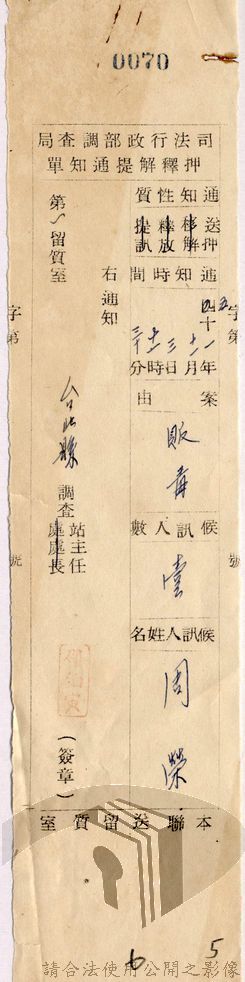 0070
司法行政部調查局
押釋解提通知單
通知性質
送押
移解
釋放
提訊
通知時間
四十五年十一月三日十二時三十分
案由
販毒
候訊人數
壹
候訊人姓名
周榮
右通知
第 留質室
台北縣調查
站主任
處處長
(簽章)
字第 號
字第 號
本聯送留質室
6 5
請合法使用公開之影像